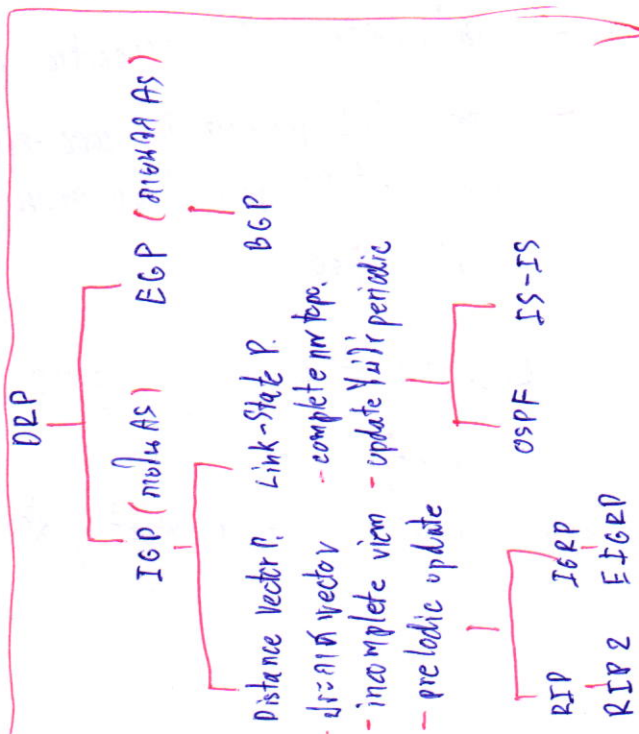 DRP
IGP (ภายใน AS)
EGP (ภายนอก AS)
BGP
Distance Vector P.
- ประกาศ vector
- incomplete view
- preiodic update
Link-State P.
- complete nw topo.
- update ไม่ใช่ periodic
RIP
RIP 2
IGRP
EIGRP
OSPF
IS-IS